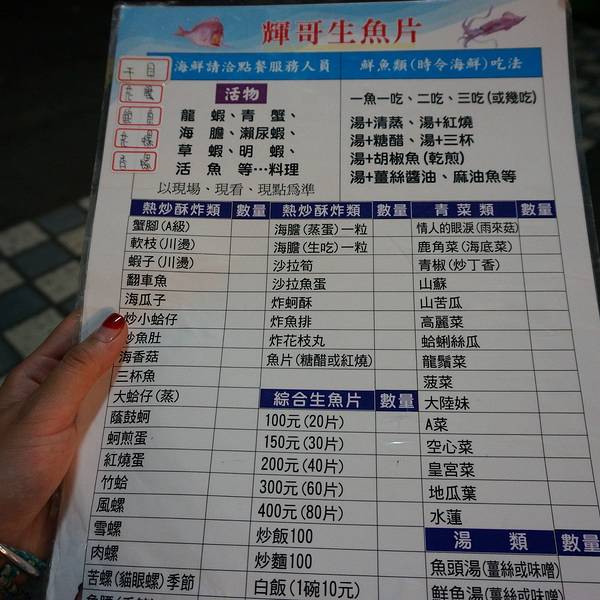 輝哥生魚片
海鮮請洽點餐服務人員
活物
龍蝦、青蟹、
海膽、瀨尿蝦、
草蝦、明蝦、
活魚等…料理
以現場、現看、現點為準
鮮魚類(時令海鮮)吃法
一魚一吃、二吃、三吃(或幾吃)
湯+清蒸、湯+紅燒
湯+糖醋、湯+三杯
湯+胡椒魚(乾煎)
湯+薑絲醬油、麻油魚等
熱炒酥炸類 數量
蟹腳(A級)
軟枝(川燙)
蝦子(川燙)
翻車魚
海瓜子
炒小蛤仔
炒魚肚
海香菇
三杯魚
大蛤仔(蒸)
蔭鼓蚵
蚵煎蛋
紅燒蛋
竹蛤
風螺
雪螺
肉螺
苦螺(貓眼螺)季節
熱炒酥炸類 數量
海膽(蒸蛋)一粒
海膽(生吃)一粒
沙拉筍
沙拉魚蛋
炸蚵酥
炸魚排
炸花枝丸
魚片(糖醋或紅燒)
綜合生魚片 數量
100元(20片)
150元(30片)
200元(40片)
300元(60片)
400元(80片)
炒飯100
炒麵100
白飯(1碗10元)
青菜類 數量
情人的眼淚(雨來菇)
鹿角菜(海底菜)
青椒(炒丁香)
山蘇
山苦瓜
高麗菜
蛤蜊絲瓜
龍鬚菜
菠菜
大陸妹
A菜
空心菜
皇宮菜
地瓜葉
水蓮
湯類 數量
魚頭湯(薑絲或味噌)
鮮魚湯(薑絲或味噌)